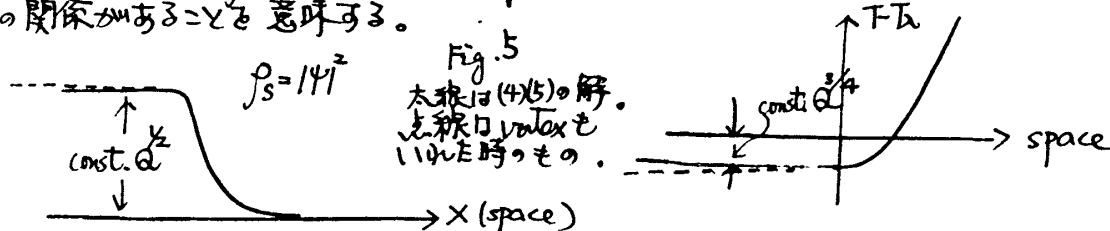 の関係があることを意味する。
Fig.5
ρs=|ψ|²
太線は(4)(5)の解。
点線はvortexも
いれた時のもの.
const. Q^1/2
X (space)
T-Tλ
const. Q^3/4
space